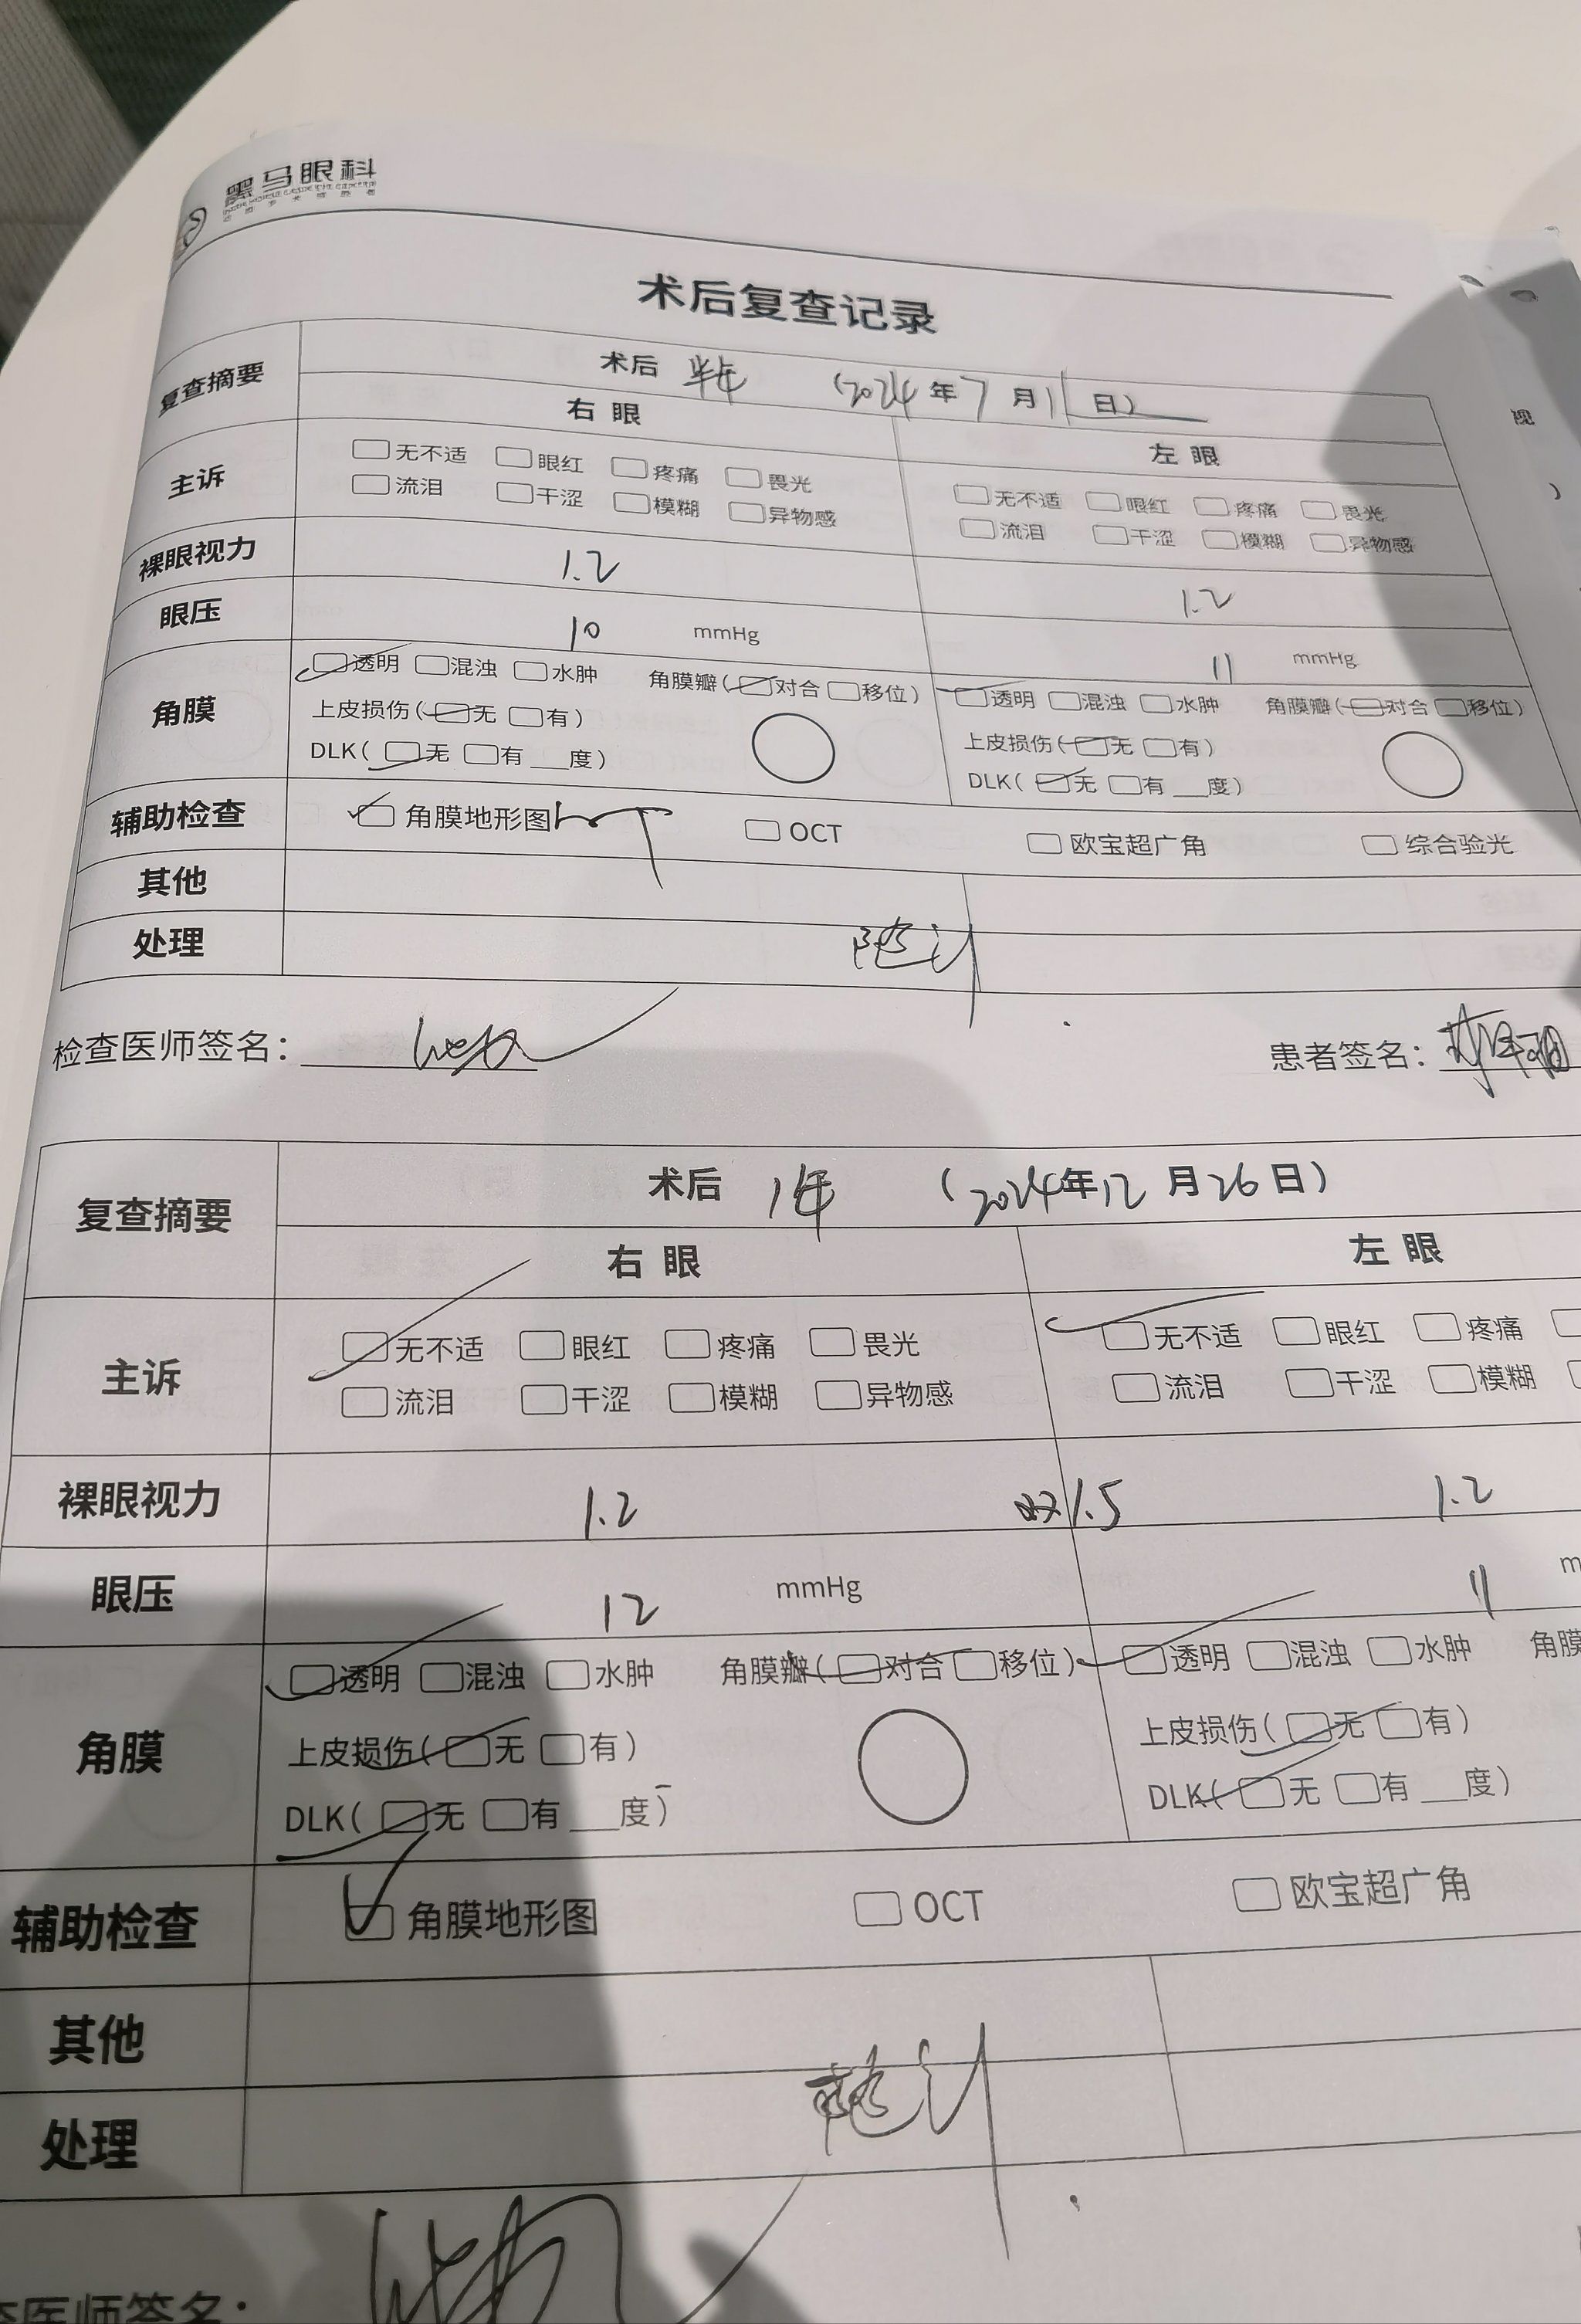 黑马眼科
术后复查记录
复查摘要 术后 半年 (2024年7月11日)
右眼 左眼
主诉 □无不适 □眼红 □疼痛 □畏光 □无不适 □眼红 □疼痛 □畏光
□流泪 □干涩 □模糊 □异物感 □流泪 □干涩 □模糊 □异物感
裸眼视力 1.2 1.2
眼压 10 mmHg 11 mmHg
角膜 ☑透明 □混浊 □水肿 角膜瓣(☑对合 □移位) ☑透明 □混浊 □水肿 角膜瓣(☑对合 □移位)
上皮损伤(☑无 □有) 上皮损伤(☑无 □有)
DLK(☑无 □有 __度) DLK(☑无 □有 __度)
辅助检查 ☑角膜地形图 □OCT □欧宝超广角 □综合验光
其他
处理 随访
检查医师签名: 患者签名:
复查摘要 术后 1年 (2024年12月26日)
右眼 左眼
主诉 ☑无不适 □眼红 □疼痛 □畏光 ☑无不适 □眼红 □疼痛
□流泪 □干涩 □模糊 □异物感 □流泪 □干涩 □模糊
裸眼视力 1.2 双1.5 1.2
眼压 12 mmHg 11 m
角膜 ☑透明 □混浊 □水肿 角膜瓣(☑对合 □移位) ☑透明 □混浊 □水肿 角膜
上皮损伤(☑无 □有) 上皮损伤(☑无 □有)
DLK(☑无 □有 __度) DLK(☑无 □有 __度)
辅助检查 ☑角膜地形图 □OCT □欧宝超广角
其他
处理
查医师签名: